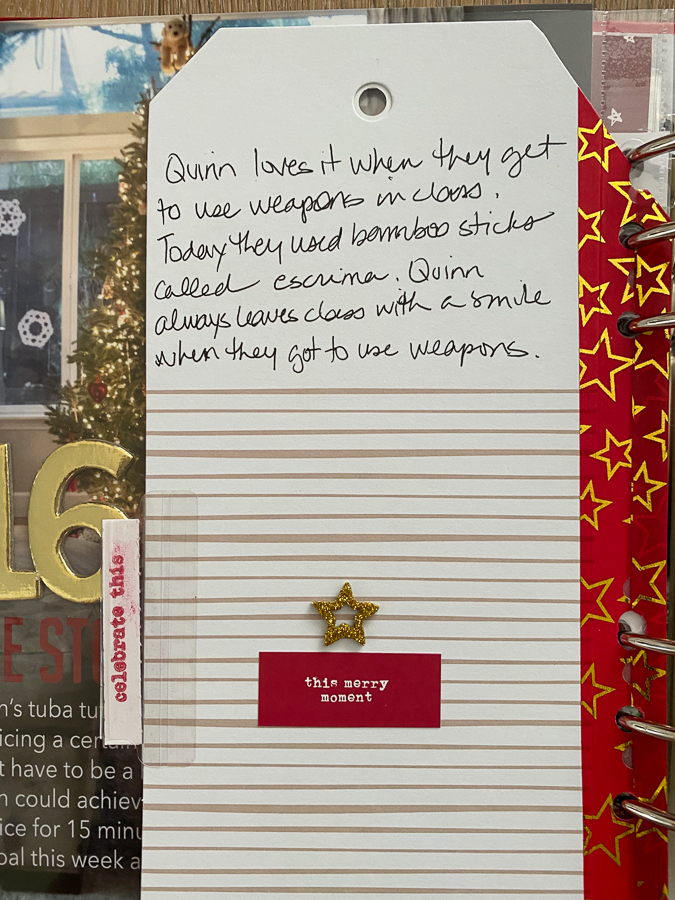 Quinn loves it when they get
to use weapons in class.
Today they used bamboo sticks
called escrima. Quinn
always leaves class with a smile
when they got to use weapons.
16
celebrate this
this merry
moment
E STO
n's tuba tu
icing a certain
t have to be a
n could achiev
ice for 15 minu
oal this week a